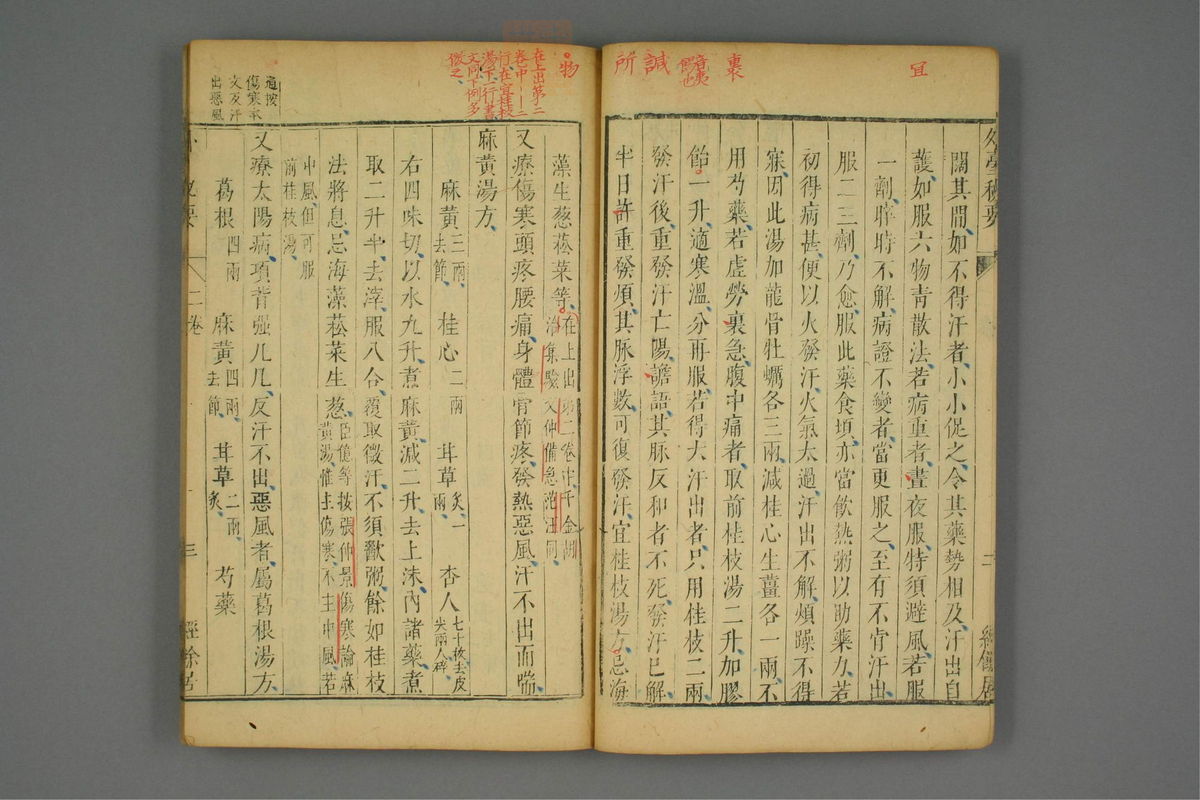 宜
裏
音夷
誠
所
闊其間如不得汗者小小促之令其藥勢相及汗出自
護如服六物青散法若病重者晝夜服特須避風若服
一劑晬時不解病證不變者當更服之至有不肯汗出
服二三劑乃愈服此藥食頃亦當飲熱粥以助藥力若
初得病甚便以火發汗火氣太過汗出不解煩躁不得
寐因此湯加龍骨牡蠣各三兩減桂心生薑各一兩不
用芍藥若虛勞裏急腹中痛者取前桂枝湯二升加膠
飴一升適寒溫分再服若得大汗出者只用桂枝二兩
發汗後重發汗亡陽譫語其脉反和者不死發汗已解
半日許重發煩其脉浮數可復發汗宜桂枝湯方忌海
物
在上出第二
卷中十二
行在宜桂枝
湯下行書
文同下例多
傚之
藻生葱菘菜等
在上出第二卷中千金
集驗文仲備急范汪同
又療傷寒頭疼腰痛身體骨節疼發熱惡風汗不出而喘
麻黃湯方
麻黃三兩去節 桂心二兩 甘草炙一兩 杏人七十枚去皮尖兩人碎
右四味切以水九升煮麻黃減二升去上沫內諸藥煮
取二升半去滓服八合覆取微汗不須歠粥餘如桂枝
法將息忌海藻菘菜生葱
臣億等按張仲景傷寒論麻
黃湯惟主傷寒不主中風若
中風但可服
前桂枝湯
又療太陽病項背强几几反汗不出惡風者屬葛根湯方
葛根四兩 麻黃四兩去節 甘草二兩炙 芍藥
二卷
三
經餘居